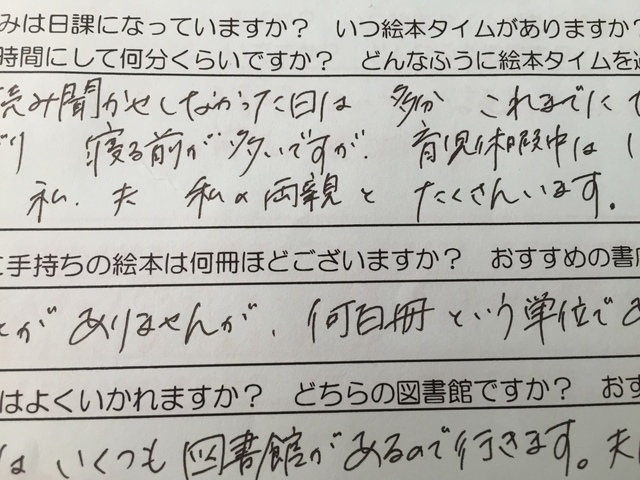 みは日課になっていますか？ いつ絵本タイムがありますか？
時間にして何分くらいですか？ どんなふうに絵本タイムを過
読み聞かせしなかった日は 多分 これまでにて
り 寝る前が多いですが、育児休暇中は
私、夫 私の両親と たくさんいます。
手持ちの絵本は何冊ほどございますか？ おすすめの書店
とがありませんが、何百冊という単位であ
はよくいかれますか？ どちらの図書館ですか？ おす
は いくつも図書館があるので行きます。夫